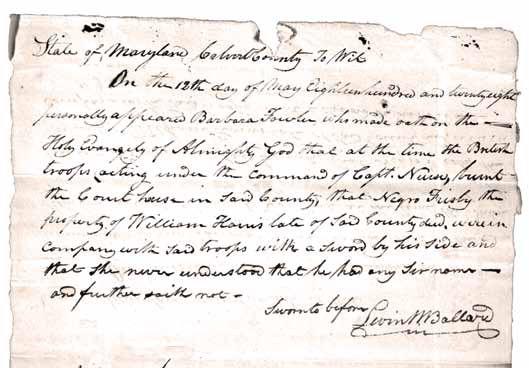 State of Maryland Calvert County To Wit
On the 12th day of May Eighteen hundred and twenty eight
personally appeared Barbara Fowler who made oath on the
Holy Evangely of Almighty God that at the time the British
troops, acting under the Command of Capt. Nurse, burnt
the Court house in Said County, that Negro Frisby the
property of William Harris late of Said County decd. were in
Company with Said troops with a Sword by his side and
that She never understood that he had any Sir name —
and further saith not -
Sworn to before
Levin W Ballard